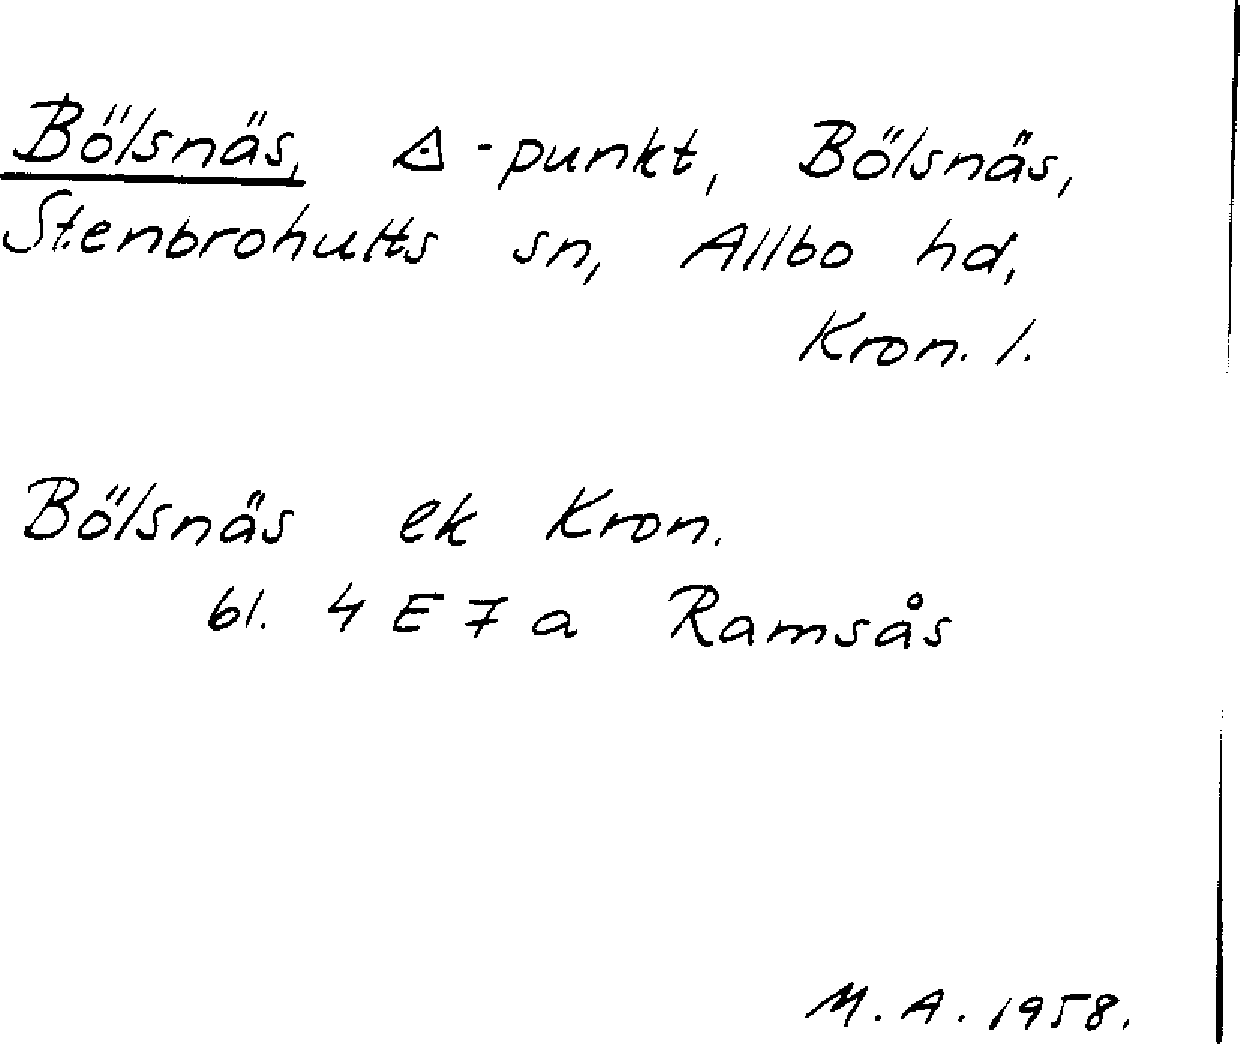 Bölsnäs, ◬-punkt, Bölsnäs,
Stenbrohults sn, Allbo hd,
Kron. l.
Bölsnäs ek Kron.
bl. 4 E 7 a Ramsås
M. A. 1958.